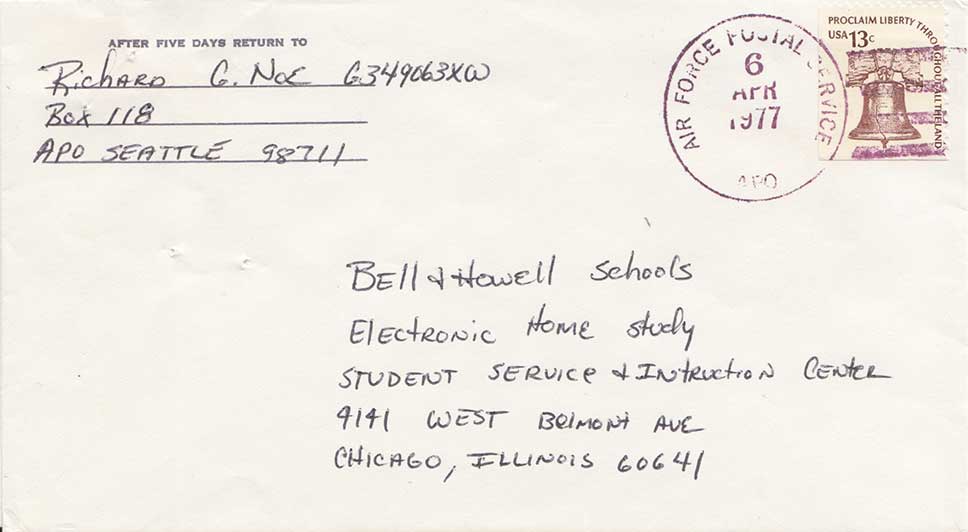 AFTER FIVE DAYS RETURN TO
Richard G. Noe G349063XW
Box 118
APO SEATTLE 98711
AIR FORCE POSTAL SERVICE
6
APR
1977
APO
PROCLAIM LIBERTY THROUGHOUT ALL THE LAND
USA 13c
Bell & Howell Schools
Electronic Home Study
STUDENT SERVICE & INSTRUCTION CENTER
4141 WEST Belmont AVE
CHICAGO, ILLINOIS 60641